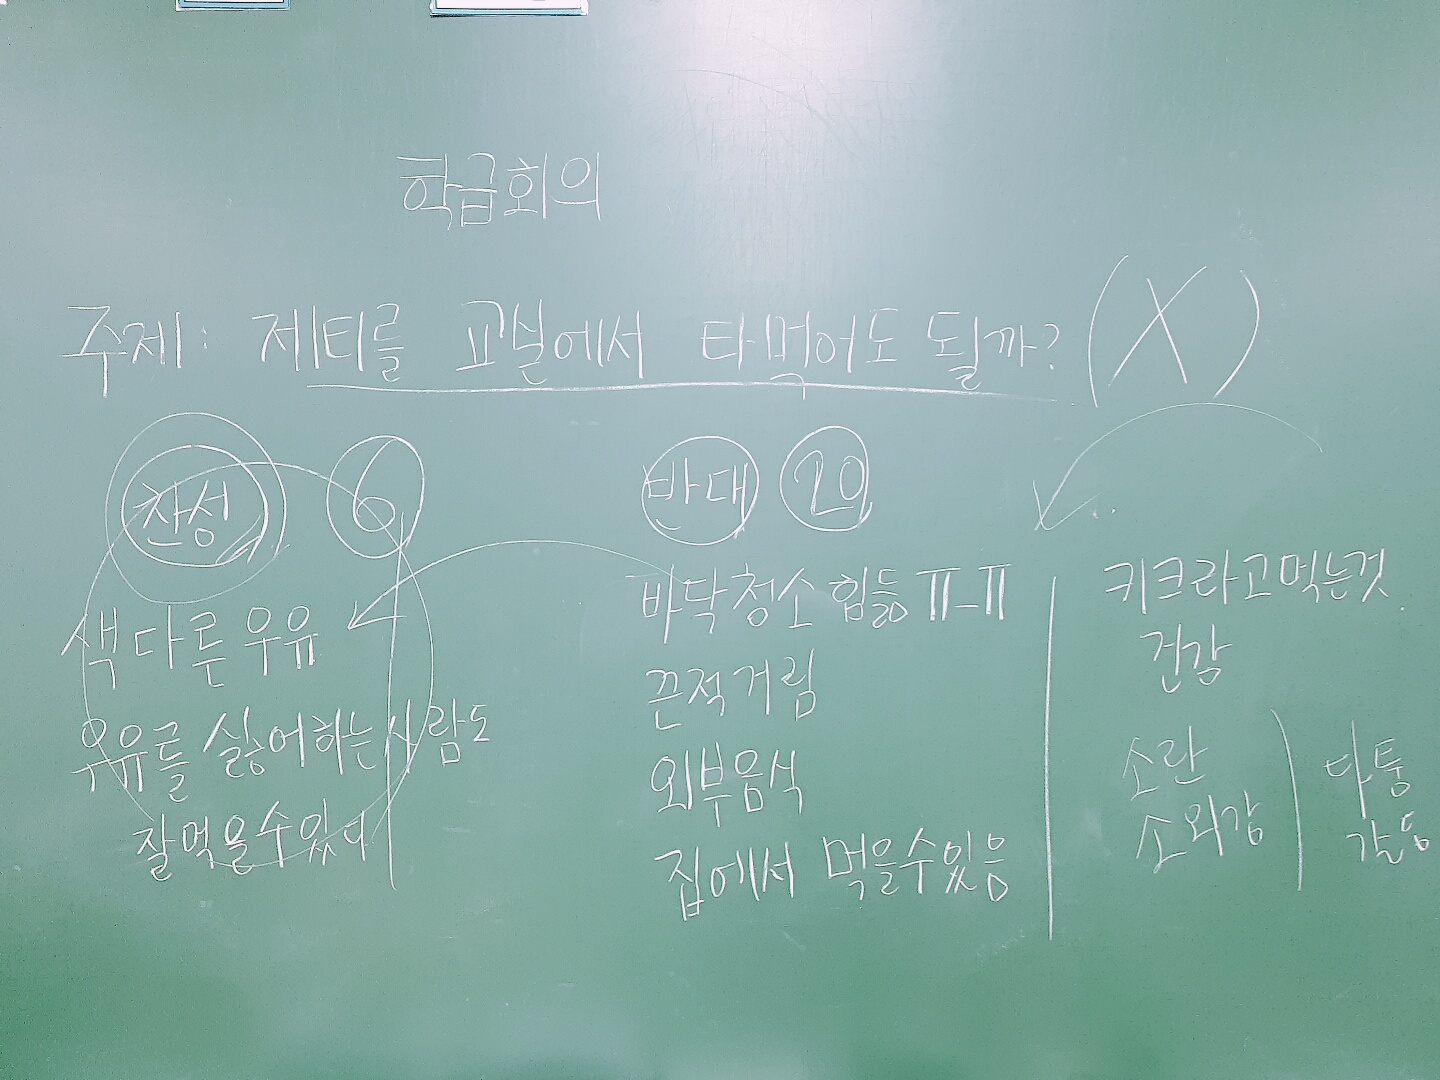 학급회의
주제: 제티를 교실에서 타먹어도 될까? (X)
찬성 6
색다른 우유
우유를 싫어하는 사람도
잘먹을수있다
반대 20
바닥청소 힘듦 ㅠ-ㅠ
끈적거림
외부음식
집에서 먹을수있음
키크라고먹는것
건강
소란
소외감
다툼
갈등